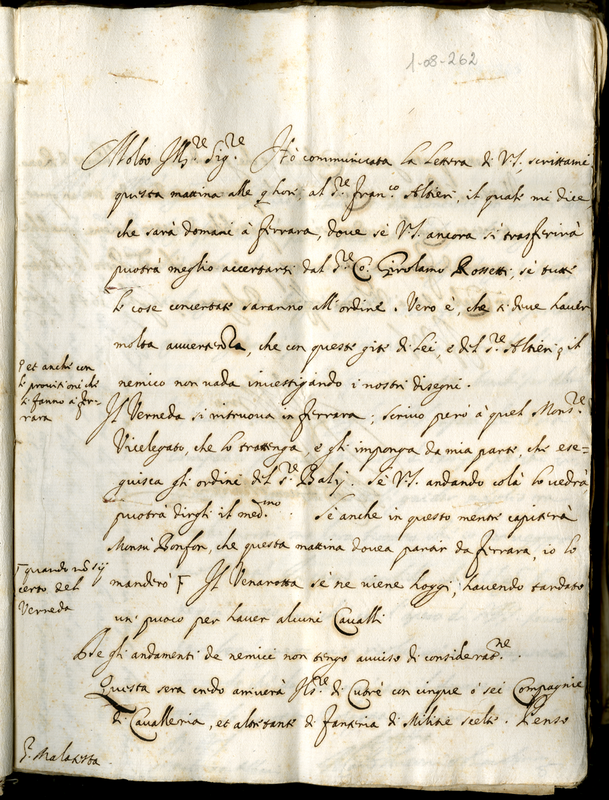 1-08-262
Molto Ill.re Sig.re Hò communicata la lettera di V.S. scrittami
questa mattina alle 9 hore al S.re Fran.co Altieri, il quale mi dice
che sarà domani à Ferrara, dove se V.S. ancora si trasferirà
puotrà meglio accertarsi dal S.re Co. Girolamo Rossetti, se tutte
le cose concertate saranno all'ordine. Vero è, che si deve haver
molta avvertenza, che con queste gite di Lei, e del S.re Altieri, il
nemico non vada investigando i nostri disegni.
et anche con
le provitioni che
si fanno à Fer-
rara
Il Verneda si ritruova in Ferrara; scrivo però à quel Mons.re
Vicelegato, che lo trattenga, e gli imponga da mia parte, che ese=
guisca gli ordini del S.re Balÿ. Se V.S. andando colà lo vedrà,
puotrà dirgli il med.mo Se anche in questo mentre capiterà
Monsù Bonfon, che questa mattina dovea partir da Ferrara, io lo
manderò Il Venarotta se ne viene hoggi, havendo tardato
quando nõ sij
certo del
Verneda
un puoco per haver alcuni Cavalli
De gli andamenti de nemici non tengo avviso di considerat.ne
Questa sera credo arriverà di Cutrè con cinque ò sei Compagnie
di Cavalleria, et altretante di fanteria di Militie scelte. Penso
S. Malatesta